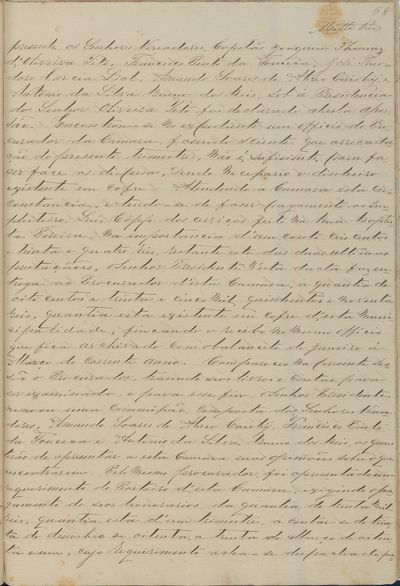 68
presente, os Senhores Vereadores, Capitão Joaquim Thomaz
d'Oliveira Tito, Francisco Pinto da Fonseca, José Theo-
doro Garcia Leal, Amando Soares de
Antonio da Silva Bueno dos Reis, sob a Presidencia
do Senhor Oliveira Tito foi declarado aberta a Ses-
são. Encontrou-se no expediente um officio do Pro-
curador da Camara, fasendo sciente que a arrecada-
ção do presente trimestre, não é sufisiente, para fa-
ser face as despesas, sendo necessario o dinheiro
existente em cofre. Attendendo a Camara esta cir-
constancia, e tendo-se de faser pagamento ao Im-
preiteiro, Luis do serviço feito na
Pereira, na importancia d'um conto seis centos
e trinta e quatro reis, restante este das duas ultimas
prestaçoes, o Senhor Presidente desta data faz en-
trega ao Procurador d'esta Camara, a quantia de
oito centos e trinta e cinco mil, quinhentos e noventa
reis, quantia esta existente em cofre d'esta Muni-
cipalidade, ficando o recibo no mesmo officio
que fica archivado com o balancete de Janeiro a
Março do corrente anno. Compareceu na presente Ses-
são o Procurador, trasendo seos livros e contas, para
ser examinado, e para esse fim, o Senhor Presidente
nomeou uma Commissão composta dos Senhores Verea-
dores, Amando Soares de Francisco Pinto
da Fonseca e Antonio da Silva Bueno dos Reis, os quaes
terão de apresentar a esta Camara suas opiniões sobre o que
encontrarem. Pelo mesmo procurador, foi apresentado um
requerimento do Porteiro d'esta Camara, exigindo o pa-
gamento de seos honorarios, da quantia de trinta mil
reis, quantia esta d'um trimestre, a contar-se de trin-
ta de Desembro de oitenta, a trinta de Março de oiten-
ta e um, cujo requerimento acha-se despachado pa-